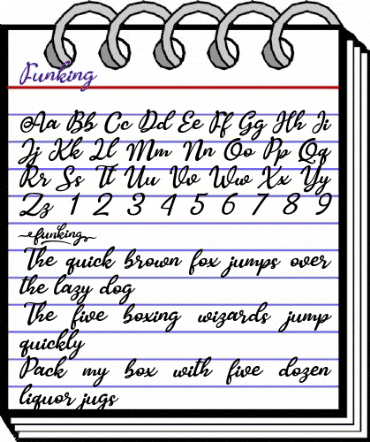 Funking
Aa Bb Cc Dd Ee Ff Gg Hh Ii
Jj Kk Ll Mm Nn Oo Pp Qq
Rr Ss Tt Uu Vv Ww Xx Yy
Zz 1 2 3 4 5 6 7 8 9
funking
The quick brown fox jumps over
the lazy dog
The five boxing wizards jump
quickly
Pack my box with five dozen
liquor jugs